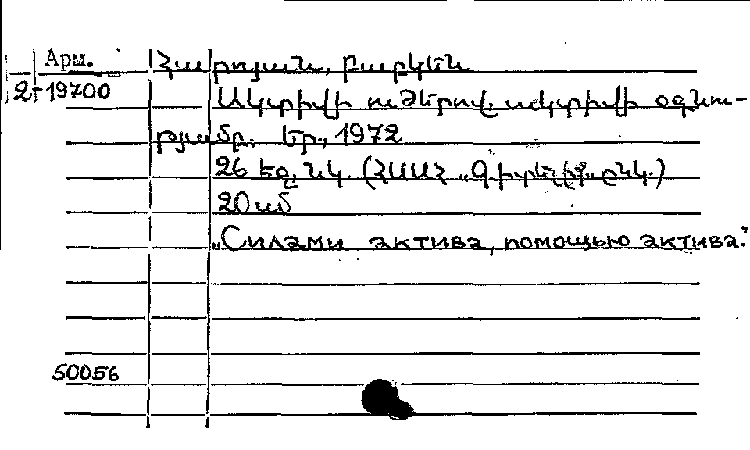 Арм.
2-19700
Հարոյան, Բաբկեն
Ակտիվի ուժերով, ակտիվի օգնու-
թյամբ. Եր., 1972
26 եջ, նկ. (ՀՍՍՀ „Գիտելիք" ընկ.)
20 սմ
„Силами актива, помощью актива."
50056